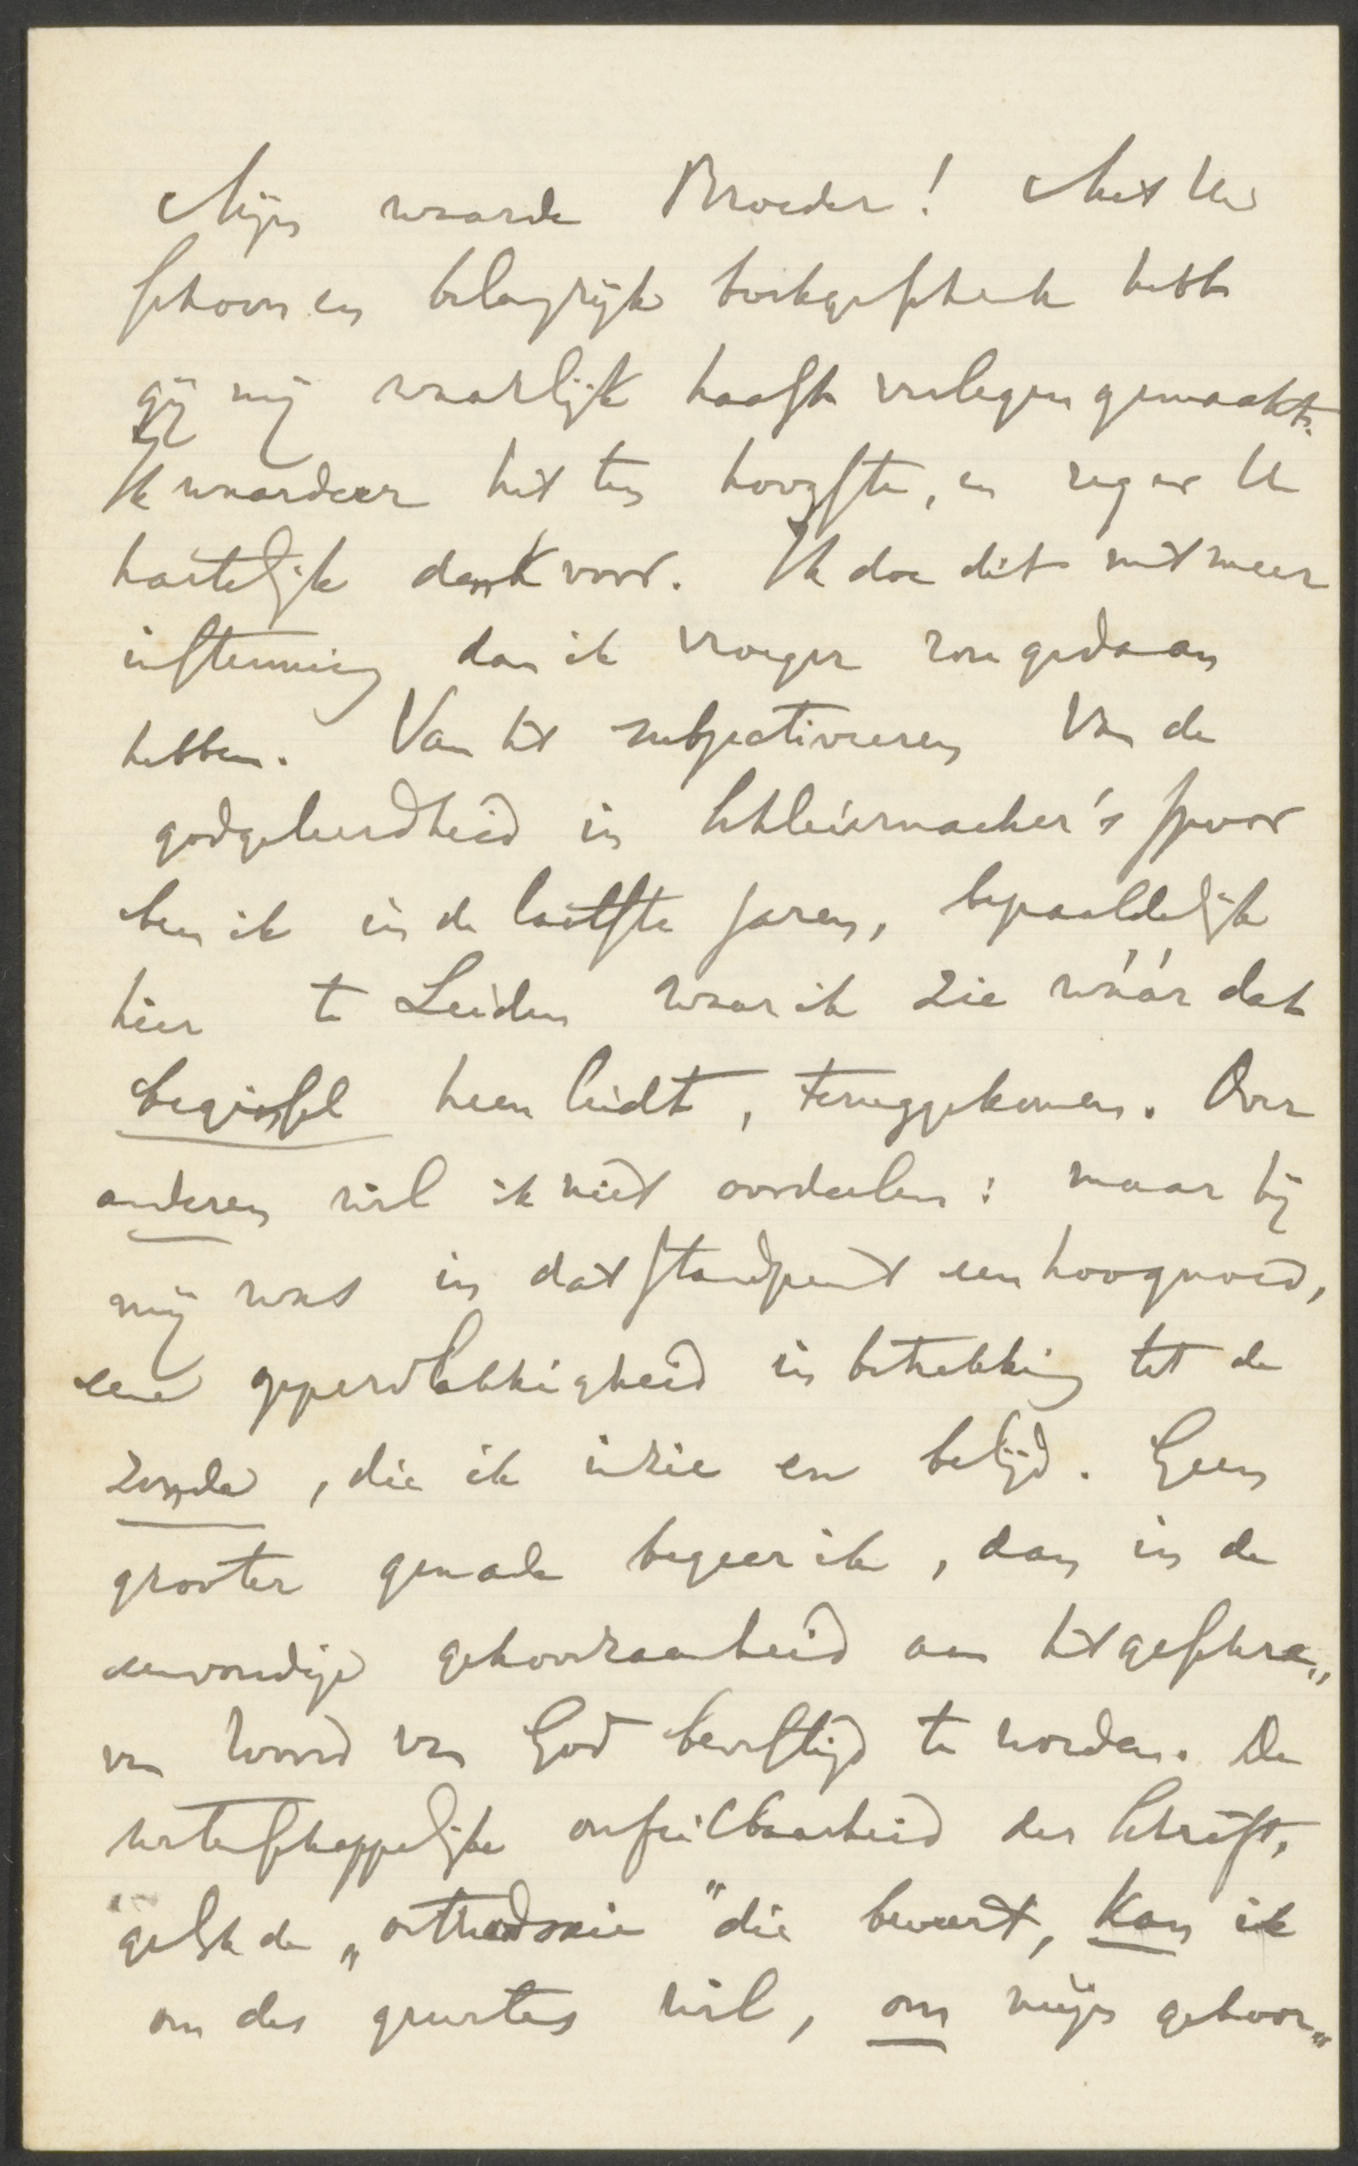 Mijn waarde Broeder! Met Uw
schoon en belangrijk boekgeschenk hebt
gij mij waarlijk haast verlegen gemaakt.
Ik waardeer het ten hoogste, en zeg er U
hartelijk dank voor. Ik doe dit met meer
instemming dan ik vroeger zou gedaan
hebben. Van het subjectiveeren van de
godgeleerdheid in Schleiermacher's spoor
ben ik in de laatste jaren, bepaaldelijk
hier te Leiden waar ik zie wáár dat
beginsel heen leidt, teruggekomen. Over
anderen wil ik niet oordeelen: maar bij
mij was in dat standpunt een hoogmoed,
eene oppervlakkigheid in betrekking tot de
zonde, die ik inzie en belijd. Geen
grooter genade begeer ik, dan in de
eenvoudige gehoorzaamheid aan het geschre„
ven Woord van God bevestigd te worden. De
wetenschappelijke onfeilbaarheid der Schrift,
gelijk de „orthodoxie" die beweert, kan ik
om des gewetens wil, om mijn gehoor„